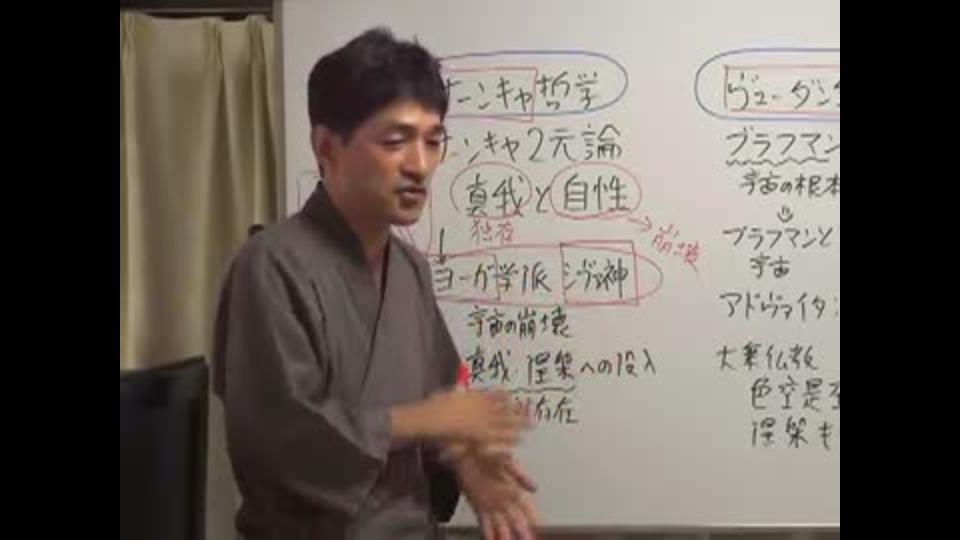 サーンキャ哲学
サーンキャ2元論
真我と自性
独存
崩壊
ヨーガ学派 シヴァ神
宇宙の崩壊
真我・涅槃への没入
存在
ヴェーダンタ
ブラフマン
宇宙の根本
ブラフマンと
宇宙
アドヴァイタ
大乗仏教
色空是
涅槃も